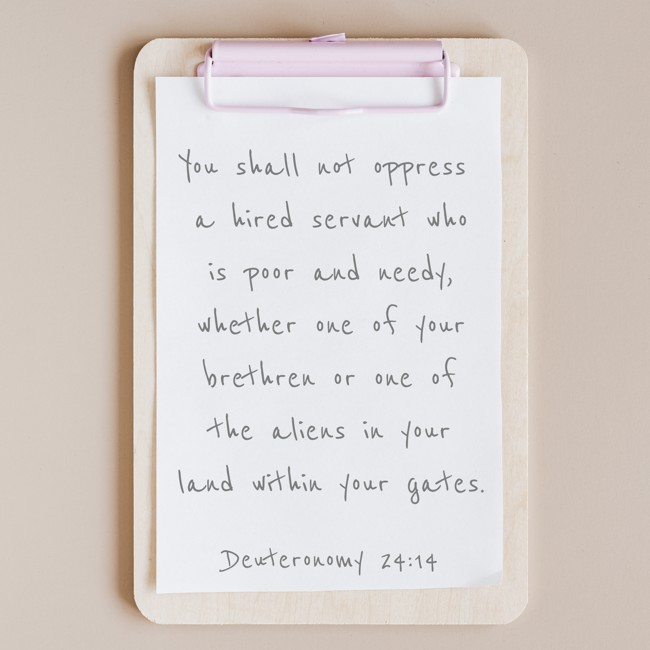 You shall not oppress
a hired servant who
is poor and needy,
whether one of your
brethren or one of
the aliens in your
land within your gates.
Deuteronomy 24:14